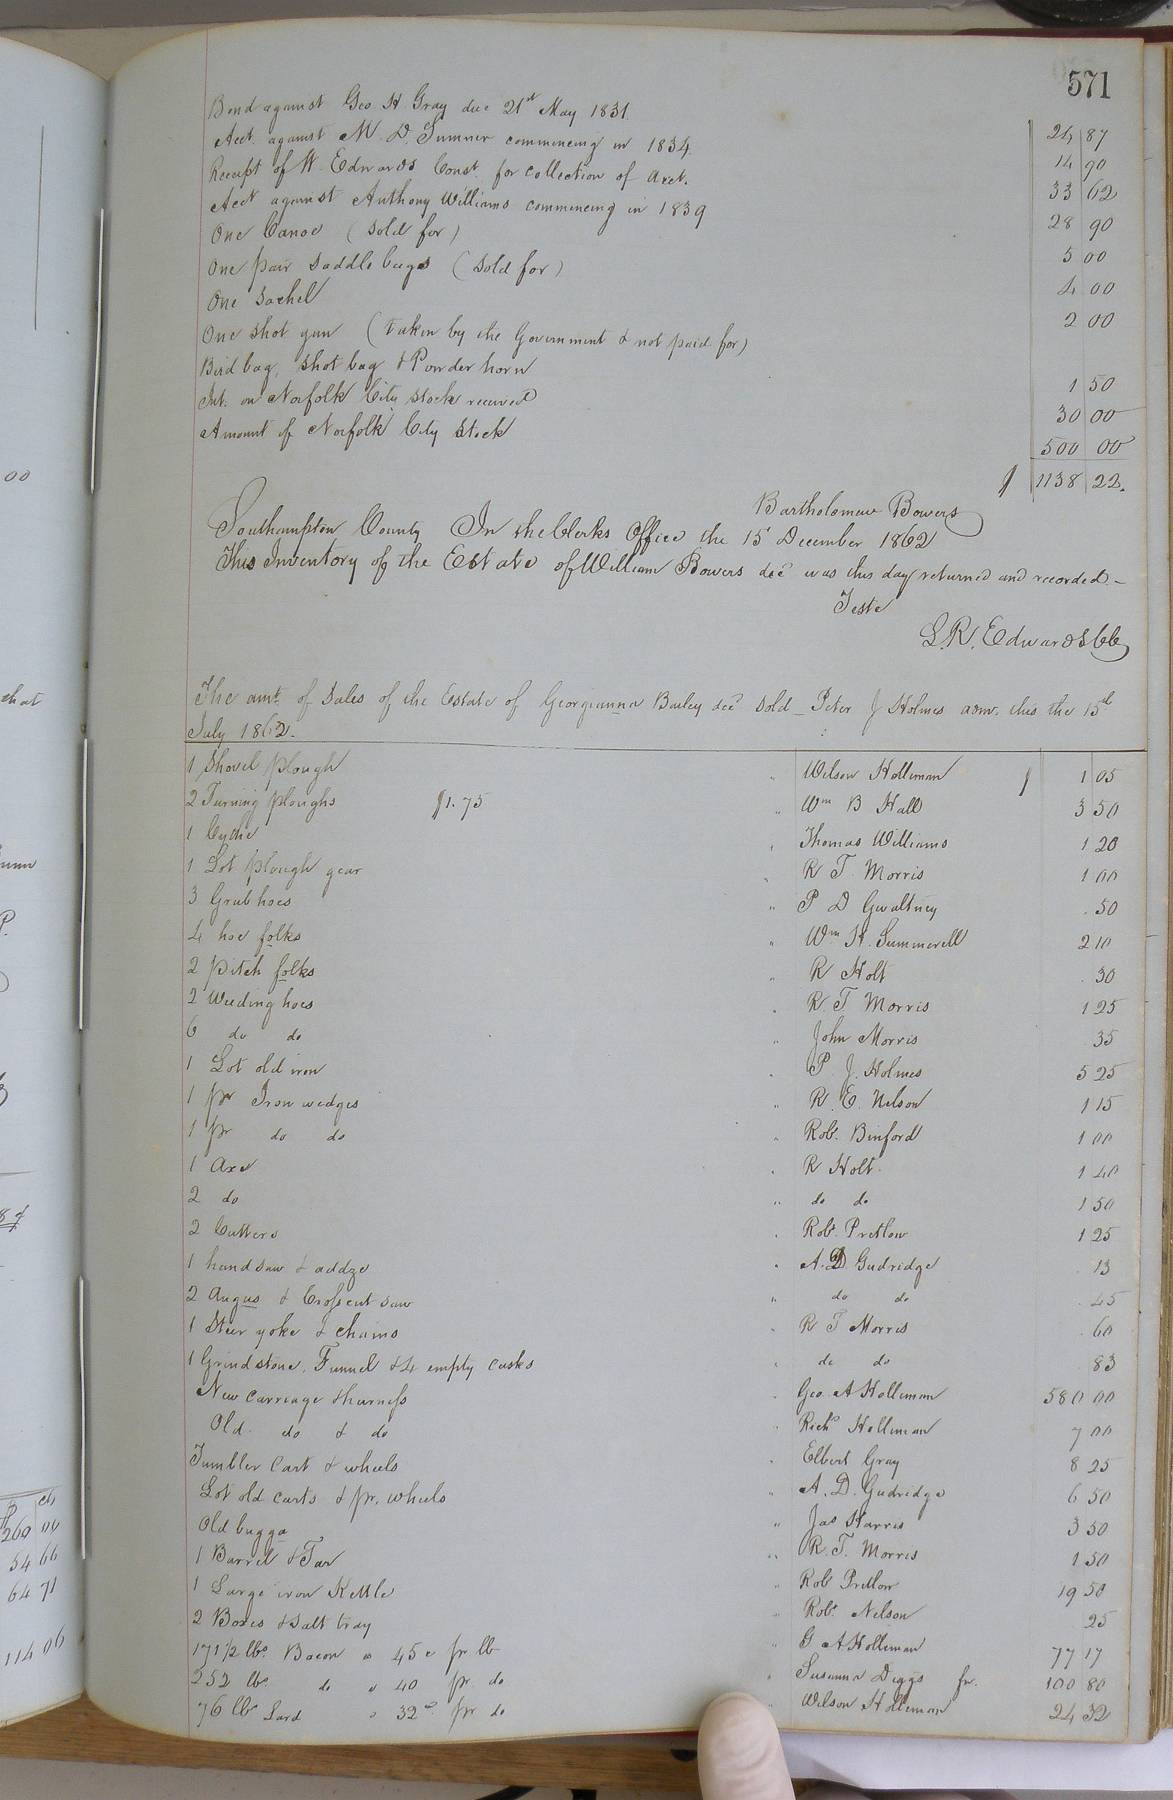 571
Bond against Geo H Gray due 21st May 1831. 24 87
Acct. against M. D. Sumner commencing in 1834. 14 90
Receipt of W. Edwards Const. for collection of acct. 33 62
Acct against Anthony Williams commencing in 1839 28 90
One Canoe (sold for) 5 00
One pair saddle bags (sold for) 4 00
One sachel 2 00
One shot gun (taken by the Government & not paid for)
Bird bag, shot bag & Powder horn 1 50
Int. on Norfolk City stock received 30 00
Amount of Norfolk City Stock 500 00
$ 1138 22.
Bartholomew Bowers
Southampton County In the Clerks Office the 15 December 1862
This Inventory of the Estate of William Bowers decd was this day returned and recorded.—
Teste
L. R. Edwards Clk
The amt. of Sales of the Estate of Georgianna Bailey decd sold — Peter J Holmes adm. this the 15th
July 1862.
1 Shovel plough " Wilson Holliman $ 1 05
2 Turning ploughs $1.75 " Wm B Hall 3 50
1 Cythe " Thomas Williams 1 20
1 Lot plough gear " R T. Morris 1 00
3 Grub hoes " P D Gwaltney .50
4 hoe folks " Wm H. Summerell 2 10
2 pitch folks " R Holt .30
2 Weeding hoes " R. T. Morris 1 25
6 do do " John Morris 35
1 Lot old iron " P. J. Holmes 5 25
1 pr Iron wedges " R. E. Nelson 1 15
1 pr do do " Robt. Binford 1 00
1 Axe " R Holt. 1 40
2 do " do do 1 50
2 Cutters " Robt. Pretlow 1 25
1 hand saw & addze " A. D. Gudridge 13
2 Augus & Crosscut saw " do do 45
1 Steer yoke & chains " R T Morris 60
1 Grindstone, Funnel & 4 empty casks " do do 83
New carriage & harness " Geo. A Holliman 580 00
Old do & do " Richd Holliman 7 00
Tumbler Cart & wheels " Elbert Gray 8 25
Lot old carts & pr. wheels " A. D. Gudridge 6 50
Old bugga " Jas Harris 3 50
1 Barrel & Tar " R. T. Morris 1 50
1 Large iron Kettle " Rob Pretlow 19 50
2 Boxes & Salt tray " Robt. Nelson 25
171 1/2 lbs. Bacon a 45 c pr lb " G A Holliman 77 17
252 lbs. do a 40 pr do " Susanna Diggs fr. 100 80
76 lbs Lard " 32 c pr do " Wilson Holliman 24 32
00
that
P.
87
$ cts
260 00
54 66
64 71
114 06